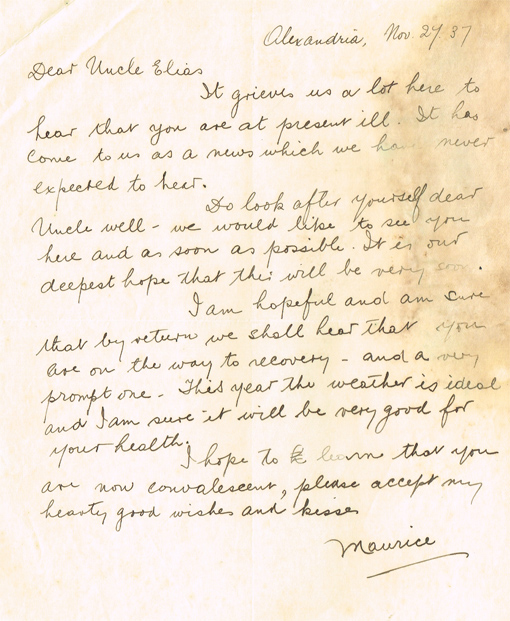 Alexandria, Nov. 27. 37
Dear Uncle Elias
It grieves us a lot here to
hear that you are at present ill. It has
come to us as a news which we have never
expected to hear.
Do look after yourself dear
Uncle well - we would like to see you
here and as soon as possible. It is our
deepest hope that this will be very soon.
I am hopeful and am sure
that by return we shall hear that you
are on the way to recovery - and a very
prompt one. This year the weather is ideal
and I am sure it will be very good for
your health.
I hope to learn that you
are now convalescent, please accept my
hearty good wishes and kisses
Maurice